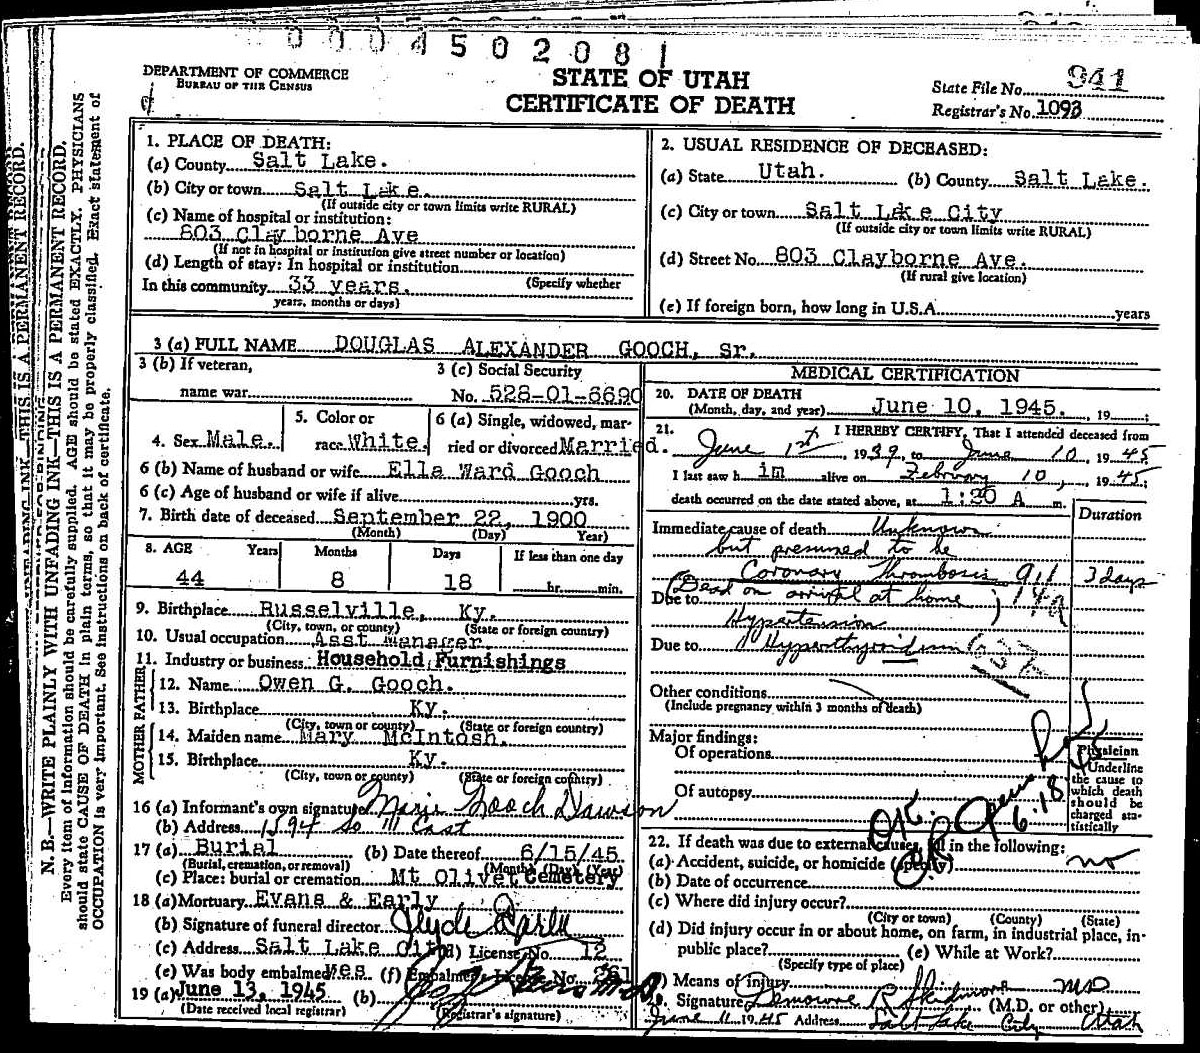 0004502081
DEPARTMENT OF COMMERCE
BUREAU OF THE CENSUS
STATE OF UTAH
CERTIFICATE OF DEATH
State File No. 941
Registrar's No. 1093
N. B.—WRITE PLAINLY WITH UNFADING INK—THIS IS A PERMANENT RECORD.
Every item of information should be carefully supplied. AGE should be stated EXACTLY. PHYSICIANS
should state CAUSE OF DEATH in plain terms, so that it may be properly classified. Exact statement of
OCCUPATION is very important. See instructions on back of certificate.
1. PLACE OF DEATH:
(a) County Salt Lake.
(b) City or town Salt Lake.
(If outside city or town limits write RURAL)
(c) Name of hospital or institution:
803 Clayborne Ave
(If not in hospital or institution give street number or location)
(d) Length of stay: In hospital or institution
In this community 33 years. (Specify whether
years, months or days)
2. USUAL RESIDENCE OF DECEASED:
(a) State Utah. (b) County Salt Lake.
(c) City or town Salt Lake City
(If outside city or town limits write RURAL)
(d) Street No. 803 Clayborne Ave.
(If rural give location)
(e) If foreign born, how long in U.S.A. years
3 (a) FULL NAME DOUGLAS ALEXANDER GOOCH, Sr.
3 (b) If veteran,
name war
3 (c) Social Security
No. 528-01-6690
4. Sex Male.
5. Color or
race White.
6 (a) Single, widowed, mar-
ried or divorced Married.
6 (b) Name of husband or wife Ella Ward Gooch
6 (c) Age of husband or wife if alive yrs.
7. Birth date of deceased September 22, 1900
(Month) (Day) Year)
8. AGE Years Months Days If less than one day
44 8 18 hr. min.
9. Birthplace Russelville, Ky.
(City, town, or county) (State or foreign country)
10. Usual occupation Asst Manager.
11. Industry or business Household Furnishings
FATHER
12. Name Owen G. Gooch.
13. Birthplace Ky.
(City, town or county) (State or foreign country)
MOTHER
14. Maiden name Mary McIntosh.
15. Birthplace Ky.
(City, town or county) (State or foreign country)
16 (a) Informant's own signature Marie Gooch Dawson
(b) Address 1594 So 11 East
17 (a) Burial (b) Date thereof 6/15/45
(Burial, cremation, or removal) (Month) (Day) (Year)
(c) Place: burial or cremation Mt Olivet Cemetery
18 (a) Mortuary Evans & Early
(b) Signature of funeral director Clyde Early
(c) Address Salt Lake City (d) License No. 12
(e) Was body embalmed yes (f) Embalmer License No. 261
19 (a) June 13, 1945 (b)
(Date received local registrar) (Registrar's signature)
MEDICAL CERTIFICATION
20. DATE OF DEATH
(Month, day, and year) June 10, 1945. , 19
21. I HEREBY CERTIFY, That I attended deceased from
June 1st, 1939, to June 10, 1945
I last saw h im alive on February 10, 1945,
death occurred on the date stated above, at 1:30 A m.
Duration
Immediate cause of death Unknown
but presumed to be
Coronary Thrombosis 3 days
(Dead on arrival at home)
Due to Hypertension
Due to Hyperthyroidism
Other conditions
(Include pregnancy within 3 months of death)
Major findings:
Of operations
Of autopsy
Physician
Underline
the cause to
which death
should be
charged sta-
tistically
OK
6-18
22. If death was due to external causes, fill in the following:
(a) Accident, suicide, or homicide (specify) no
(b) Date of occurrence
(c) Where did injury occur?
(City or town) (County) (State)
(d) Did injury occur in or about home, on farm, in industrial place, in-
public place? (e) While at Work?
(Specify type of place)
(f) Means of injury
23. Signature R Skidmore MD (M.D. or other)
June 11 1945 Address Salt Lake City Utah